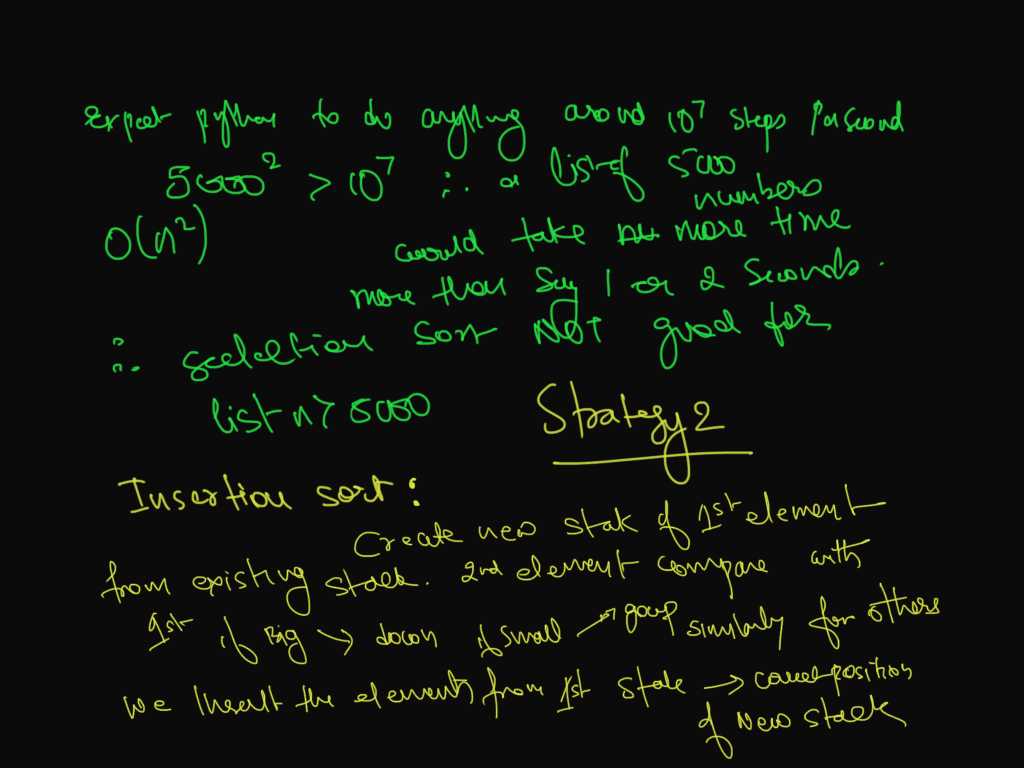 Expect python to do anything around 10⁷ steps Per second
5000² > 10⁷ ∴ a list of 5000 numbers
O(n²)
would take more time
more than say 1 or 2 seconds.
∴ selection sort NOT good for
list n > 5000
Strategy 2
Insertion sort :
Create new stak of 1st element
from existing stack. 2nd element compare with
1st if Big → down if small → goup similarly for others
we Insert the elements from 1st stak → correct position
of New stack